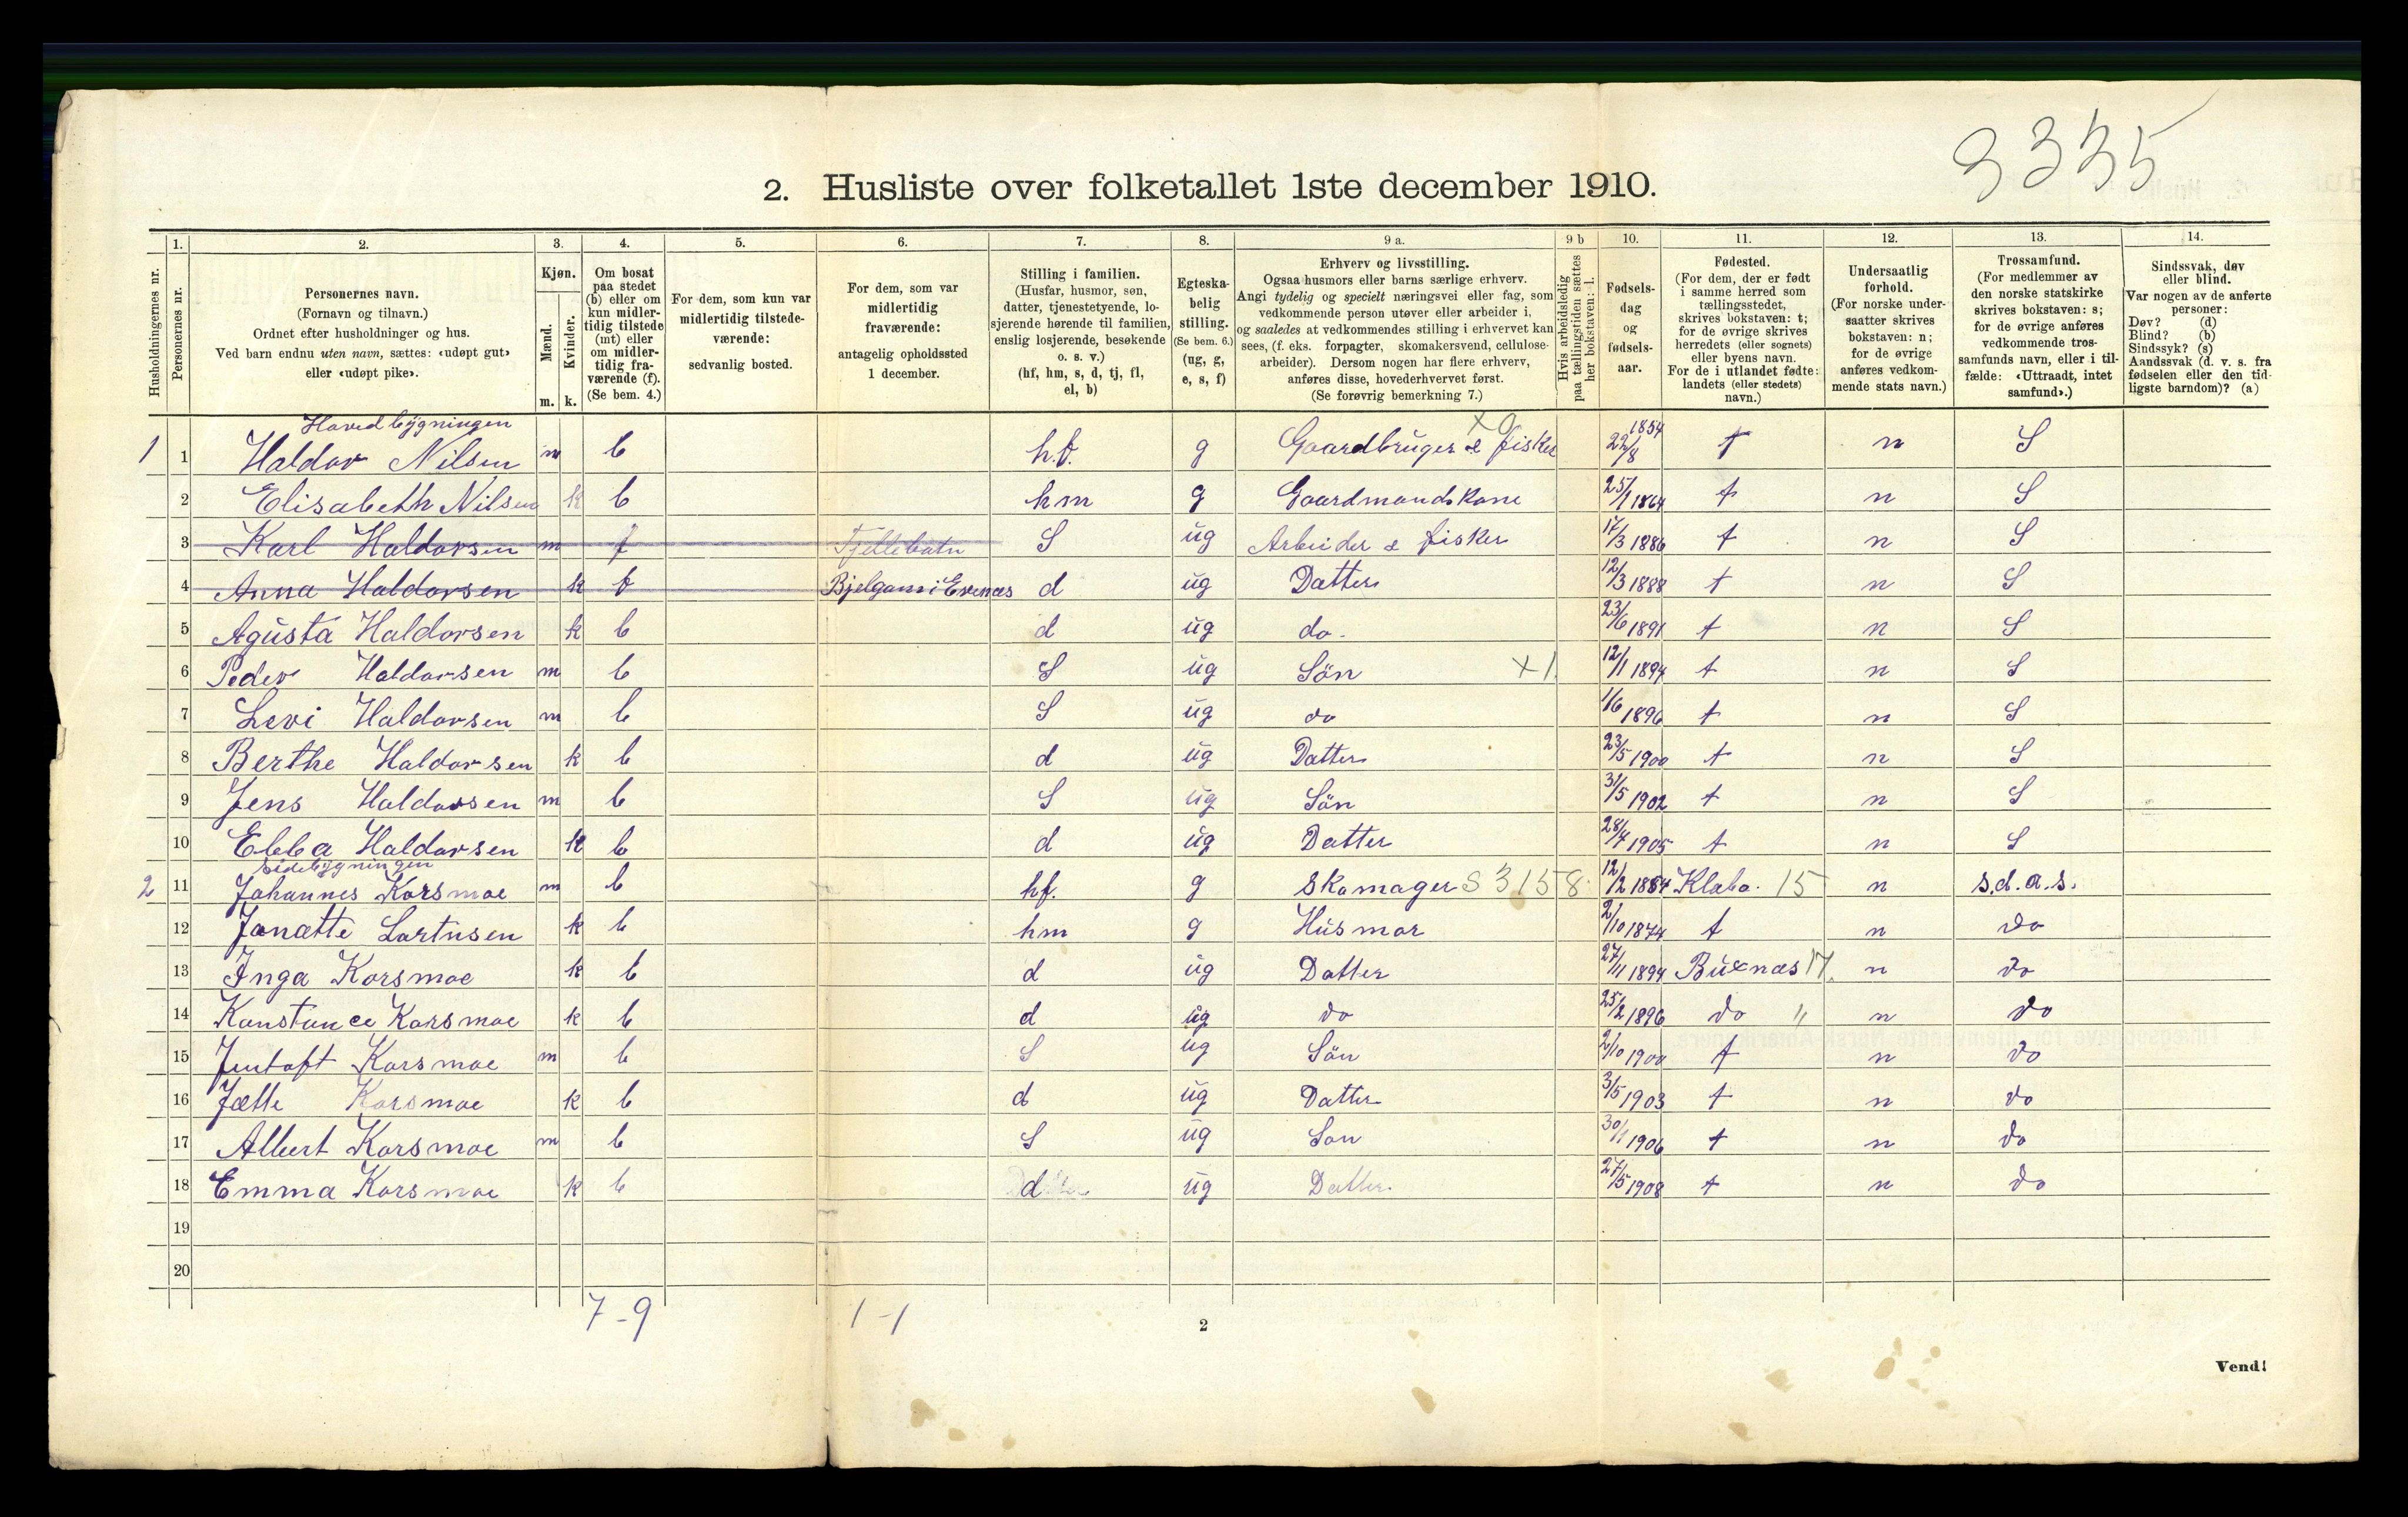 3335
2. Husliste over folketallet 1ste december 1910.
Husholdningernes nr.
1. Personernes nr.
2. Personernes navn. (Fornavn og tilnavn.) Ordnet efter husholdninger og hus. Ved barn endnu uten navn, sættes: «udøpt gut» eller «udøpt pike».
3. Kjøn. Mænd. m. Kvinder. k.
4. Om bosat paa stedet (b) eller om kun midlertidig tilstede (mt) eller om midlertidig fraværende (f). (Se bem. 4.)
5. For dem, som kun var midlertidig tilstedeværende: sedvanlig bosted.
6. For dem, som var midlertidig fraværende: antagelig opholdssted 1 december.
7. Stilling i familien. (Husfar, husmor, søn, datter, tjenestetyende, losjerende hørende til familien, enslig losjerende, besøkende o. s. v.) (hf, hm, s, d, tj, fl, el, b)
8. Egteskabelig stilling. (Se bem. 6.) (ug, g, e, s, f)
9 a. Erhverv og livsstilling. Ogsaa husmors eller barns særlige erhverv. Angi tydelig og specielt næringsvei eller fag, som vedkommende person utøver eller arbeider i, og saaledes at vedkommendes stilling i erhvervet kan sees, (f. eks. forpagter, skomakersvend, cellulosearbeider). Dersom nogen har flere erhverv, anføres disse, hovederhvervet først. (Se forøvrig bemerkning 7.)
9 b Hvis arbeidsledig paa tællingstiden sættes her bokstaven: l.
10. Fødselsdag og fødselsaar.
11. Fødested. (For dem, der er født i samme herred som tællingsstedet, skrives bokstaven: t; for de øvrige skrives herredets (eller sognets) eller byens navn. For de i utlandet fødte: landets (eller stedets) navn.)
12. Undersaatlig forhold. (For norske undersaatter skrives bokstaven: n; for de øvrige anføres vedkommende stats navn.)
13. Trossamfund. (For medlemmer av den norske statskirke skrives bokstaven: s; for de øvrige anføres vedkommende trossamfunds navn, eller i tilfælde: «Uttraadt, intet samfund».)
14. Sindssvak, døv eller blind. Var nogen av de anførte personer: Døv? (d) Blind? (b) Sindssyk? (s) Aandssvak (d. v. s. fra fødselen eller den tidligste barndom)? (a)
Hovedbygningen
1 1 Haldor Nilsen m b h.f. g Gaardbruger & fisker 22/8 1854 t n S
2 Elisabeth Nilsen k b hm g Gaardmandskone 25/1 1864 t n S
3 Karl Haldorsen m f S ug Arbeider & fisker 17/3 1886 t n S
4 Anna Haldorsen k f Bjelgam i Evenæs d ug Datter 12/3 1888 t n S
5 Agústa Haldorsen k b d ug do. 23/6 1891 t n S
6 Peder Haldorsen m b S ug Sön x1 12/1 1894 t n S
7 Levi Haldorsen m b S ug do 1/6 1896 t n S
8 Berthe Haldorsen k b d ug Datter 23/5 1900 t n S
9 Jens Haldorsen m b S ug Sön 31/5 1902 t n S
10 Ebba Haldorsen k b d ug Datter 28/4 1905 t n S
Sidebygningen
2 11 Johannes Korsmoe m b hf. g Skomager S 3158 12/2 1854 Klæbo. 15 n s.d.a.s.
12 Janætte Lartnsen k b hm g Húsmor 2/10 1874 t n do
13 Inga Korsmoe k b d ug Datter 27/11 1894 Buxnæs 17. n do
14 Konstance Korsmoe k b d ug do 25/2 1896 do " n do
15 Jentoft Korsmoe m b S ug Sön 2/10 1900 t n do
16 Jætte Korsmoe k b d ug Datter 3/5 1903 t n do
17 Albert Korsmoe m b S ug Son 30/1 1906 t n do
18 Emma Korsmoe k b d ug Datter 27/5 1908 t n do
19
20
7-9 1-1
2
Vend!